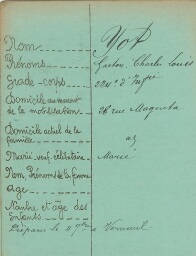 Nom Yof
Prénoms Gaston, Charles Louis
Grade - corps 224e d'Infrie
Domicile au moment
de la mobilisation 28 rue Magenta
Domicile actuel de la
famille
Marié, veuf, célibataire Marié
Nom, Prénoms de la femme
age
Nombre et âge des
Enfants
Disparu le à Verneuil